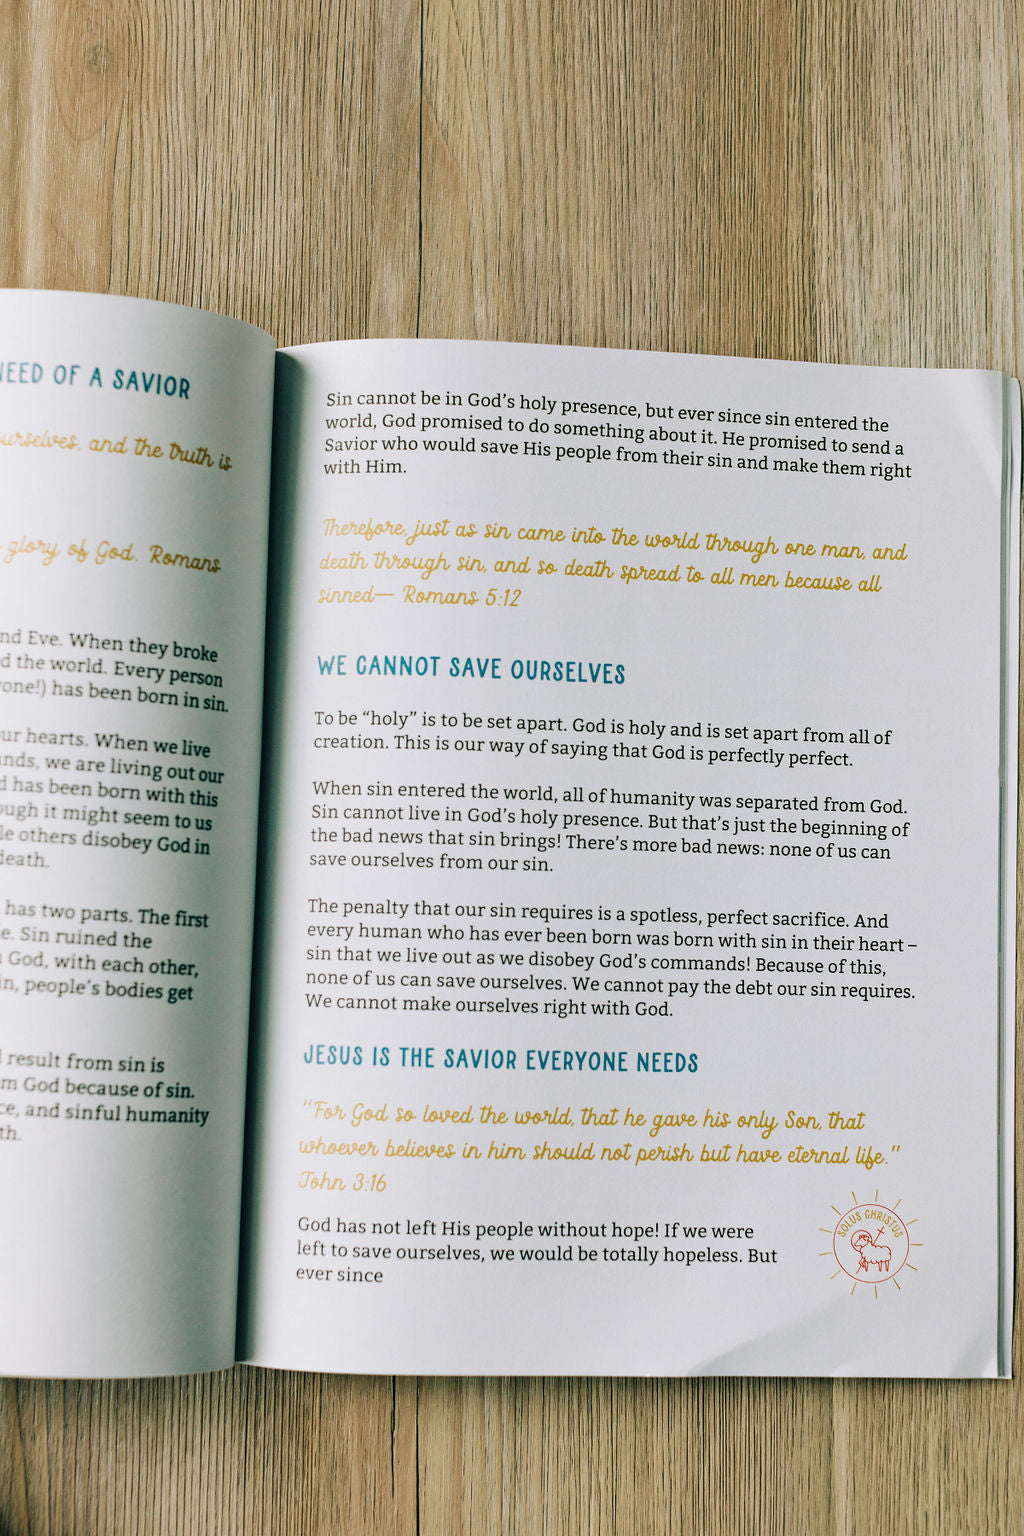 NEED OF A SAVIOR
ourselves, and the truth is
glory of God. Romans
nd Eve. When they broke
d the world. Every person
one!) has been born in sin.
ur hearts. When we live
nds, we are living out our
d has been born with this
ough it might seem to us
le others disobey God in
death.
has two parts. The first
e. Sin ruined the
God, with each other,
in, people's bodies get
result from sin is
m God because of sin.
ce, and sinful humanity
th.
Sin cannot be in God's holy presence, but ever since sin entered the
world, God promised to do something about it. He promised to send a
Savior who would save His people from their sin and make them right
with Him.
Therefore, just as sin came into the world through one man, and
death through sin, and so death spread to all men because all
sinned— Romans 5:12
WE CANNOT SAVE OURSELVES
To be “holy” is to be set apart. God is holy and is set apart from all of
creation. This is our way of saying that God is perfectly perfect.
When sin entered the world, all of humanity was separated from God.
Sin cannot live in God's holy presence. But that's just the beginning of
the bad news that sin brings! There's more bad news: none of us can
save ourselves from our sin.
The penalty that our sin requires is a spotless, perfect sacrifice. And
every human who has ever been born was born with sin in their heart –
sin that we live out as we disobey God's commands! Because of this,
none of us can save ourselves. We cannot pay the debt our sin requires.
We cannot make ourselves right with God.
JESUS IS THE SAVIOR EVERYONE NEEDS
“For God so loved the world, that he gave his only Son, that
whoever believes in him should not perish but have eternal life.”
John 3:16
God has not left His people without hope! If we were
left to save ourselves, we would be totally hopeless. But
ever since
SOLUS CHRISTUS